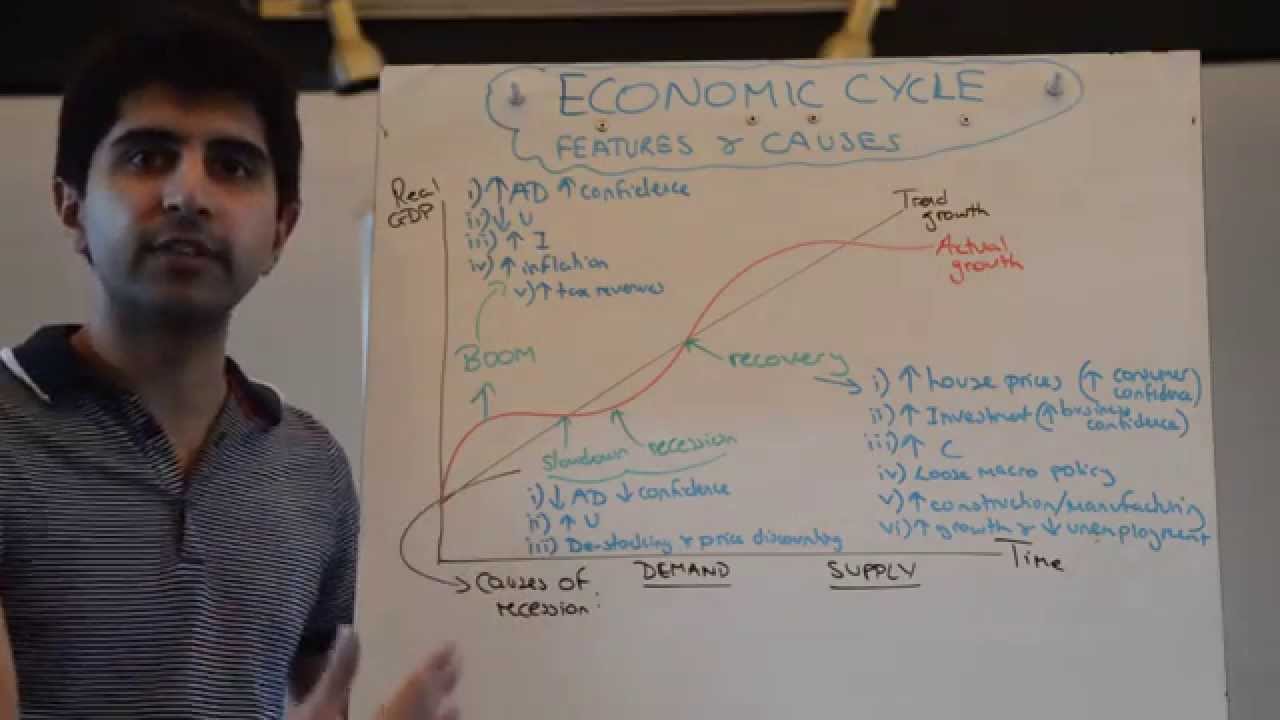 ECONOMIC CYCLE
FEATURES & CAUSES
Real
GDP
i) ↑ AD ↑ confidence
ii) ↓ U
iii) ↑ I
iv) ↑ inflation
v) ↑ tax revenues
BOOM
Trend
growth
Actual
growth
recovery
i) ↑ house prices (↑ consumer
confidence)
ii) ↑ Investment (↑ business
confidence)
iii) ↑ C
iv) Loose macro policy
v) ↑ construction/manufacturing
vi) ↑ growth & ↓ unemployment
slowdown recession
i) ↓ AD ↓ confidence
ii) ↑ U
iii) De-stocking & price discounting
Time
Causes of
recession:
DEMAND
SUPPLY